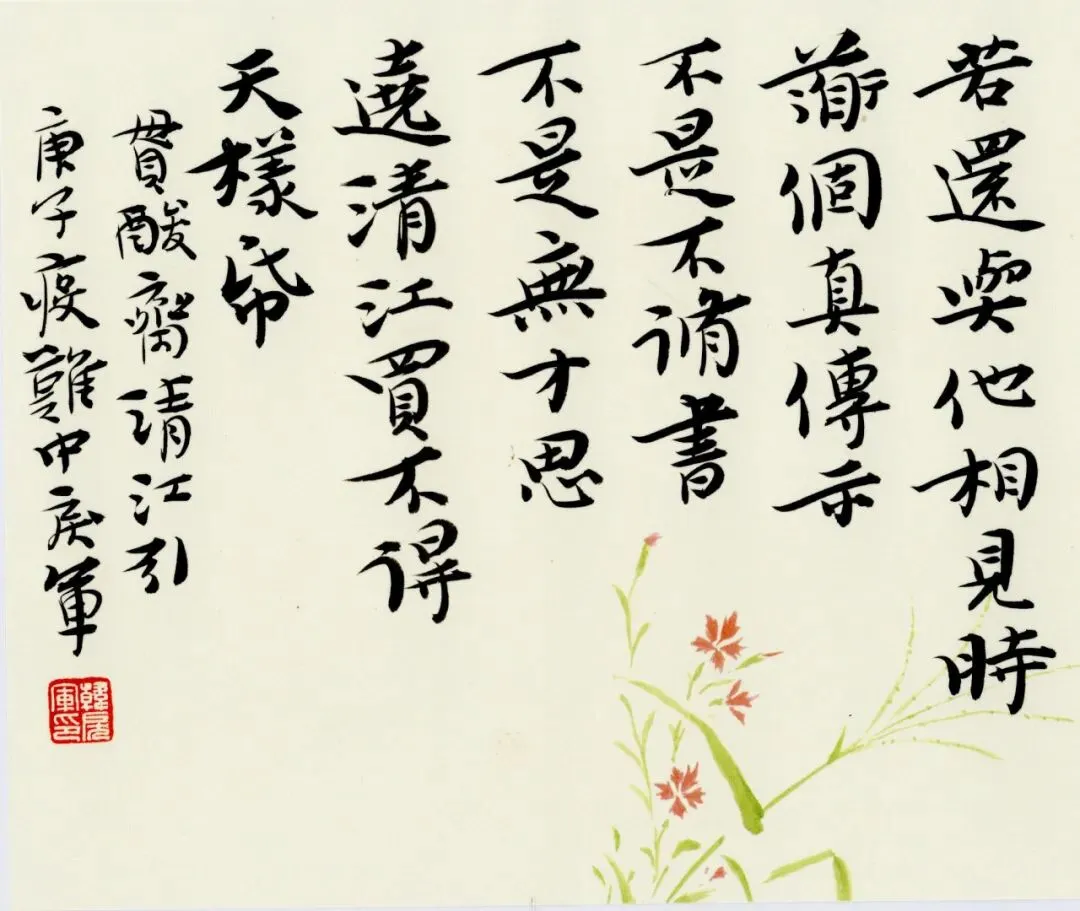 若還與他相見時
道個真傳示
不是不脩書
不是無才思
遶清江買不得
天樣帋
貫酸齋清江引
庚子疫難中軍
韓軍印